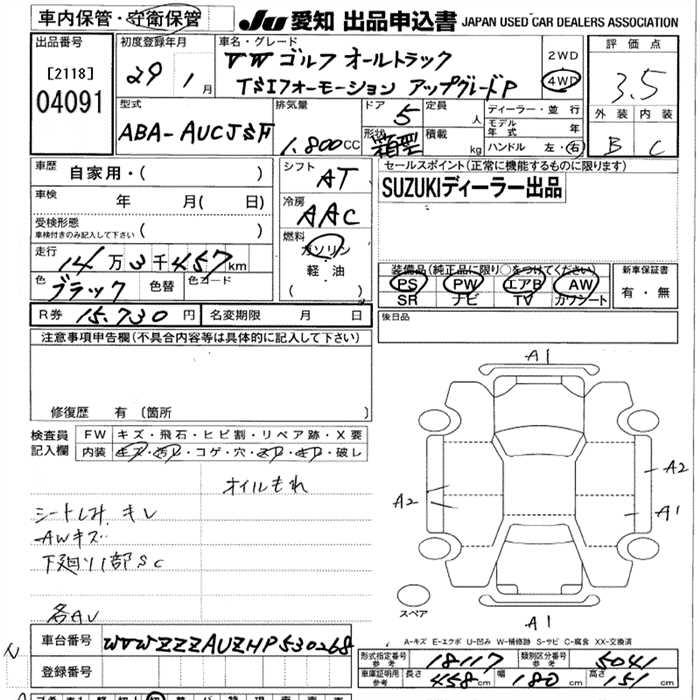 車内保管・守衛保管
JU 愛知 出品申込書 JAPAN USED CAR DEALERS ASSOCIATION
出品番号 [2118] 04091
初度登録年月 29 1月
車名・グレード VW ゴルフ オールトラック
TSIフォーモーション アップグレードP
2WD 4WD
評価点 3.5
外装 内装
B C
型式 ABA-AUCJSF
排気量 1.800CC
ドア 5
形状 箱型
定員 人
積載 kg
ディーラー・並行
モデル年式 年
ハンドル 左・右
車歴 自家用・( )
車検 年 月( 日)
受検形態 車検付きのみ記入して下さい ( )
走行 14万3千457km
色 ブラック 色替 色コード
シフト AT
冷房 AAC
燃料 ガソリン
軽・油
( )
セールスポイント(正常に機能するものに限ります)
SUZUKIディーラー出品
装備品(純正品に限り○をつけてください)
PS PW エアB AW
SR ナビ TV カワシート
新車保証書
有・無
R券 15.730円 名変期限 月 日
後日品
注意事項申告欄(不具合内容等は具体的に記入して下さい)
修復歴 有 (箇所 )
検査員記入欄 FW キズ・飛石・ヒビ割・リペア跡・X要
内装 キズ・汚レ・コゲ・穴・スレ・キレ・破レ
オイルもれ
シートしみ キレ
AWキズ
下廻り1部SC
各AU
A1
A2
A2
A1
A1
スペア
A-キズ E-エクボ U-凹み W-補修跡 S-サビ C-腐食 XX-交換済
車台番号 WVWZZZAUZHP530268
登録番号
形式指定番号 参考 18117 類別区分番号 参考 5041
車庫証明用 参考 長さ 458cm 幅 180cm 高さ 151cm